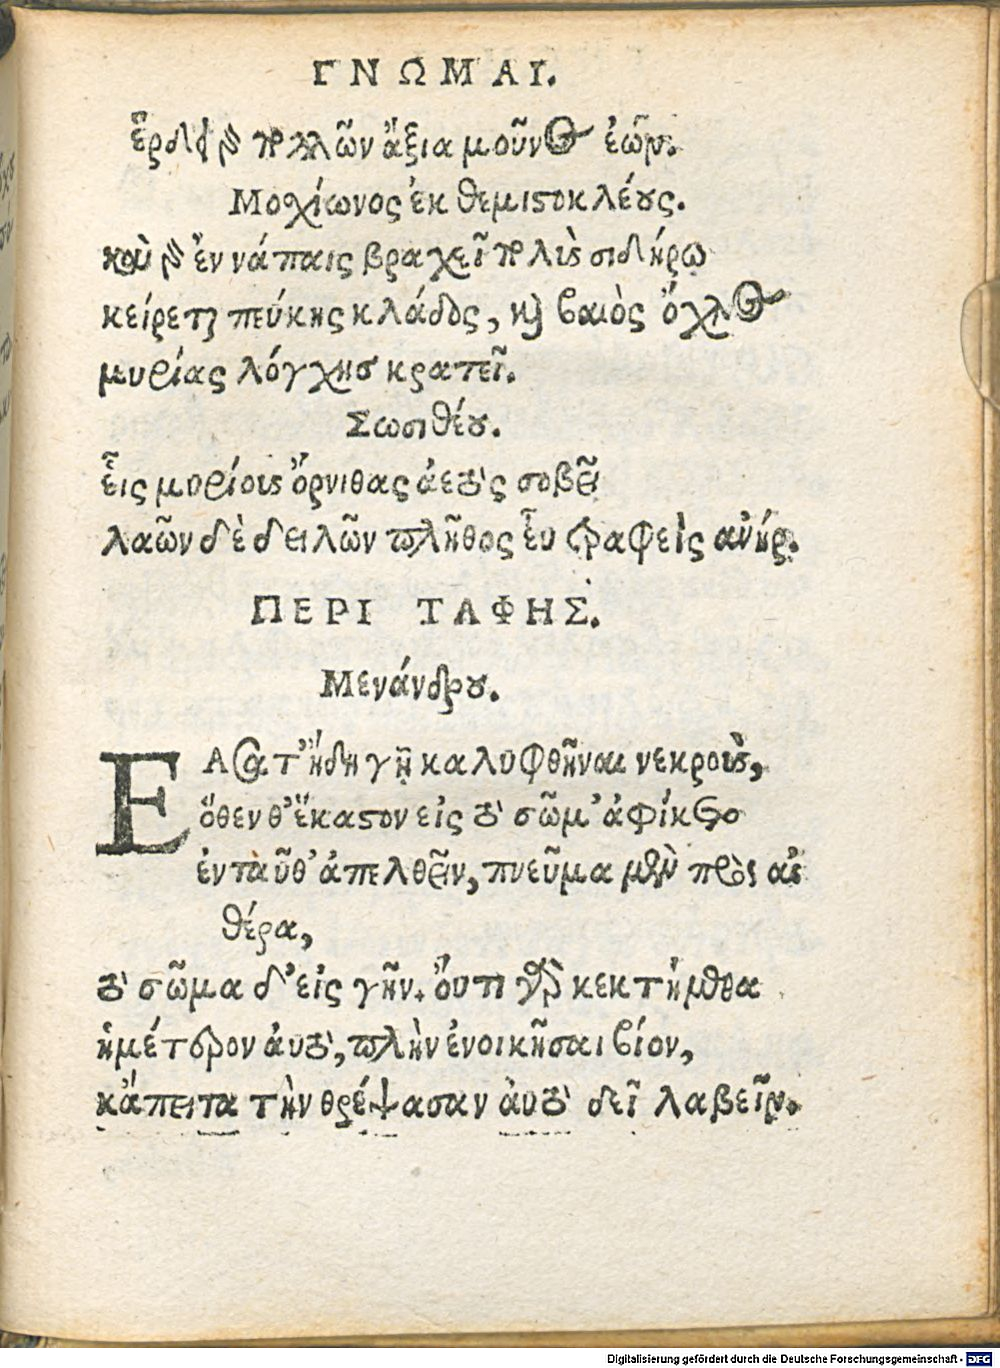 ΓΝΩΜΑΙ.
ἔρδει δὲ πολλῶν ἄξια μοῦνος ἐών.
Μοχίωνος ἐκ θεμιστοκλέους.
καὶ γὰρ ἐν νάπαις βραχεῖ πολὺς σιδήρῳ
κείρεται πεύκης κλάδος, καὶ βαιὸς ὄχλος
μυρίας λόγχης κρατεῖ.
Σωσιθέου.
εἷς μυρίους ὄρνιθας ἀετὸς σοβεῖ
λαῶν δὲ δειλῶν πλῆθος εὖ τραφεὶς ἀνήρ.
ΠΕΡΙ ΤΑΦΗΣ.
Μενάνδρου.
ΕΑσατ' ἤδη γῇ καλυφθῆναι νεκροὺς,
ὅθεν θ' ἕκαστον εἰς τὸ σῶμ' ἀφίκετο
ἐνταῦθ' ἀπελθεῖν, πνεῦμα μὲν πρὸς αἰ
θέρα,
τὸ σῶμα δ' εἰς γῆν. οὔτι γὰρ κεκτήμεθα
ἡμέτερον αὐτὸ, πλὴν ἐνοικῆσαι βίον,
κἄπειτα τὴν θρέψασαν αὐτὸ δεῖ λαβεῖν.
Digitalisierung gefördert durch die Deutsche Forschungsgemeinschaft - DFG